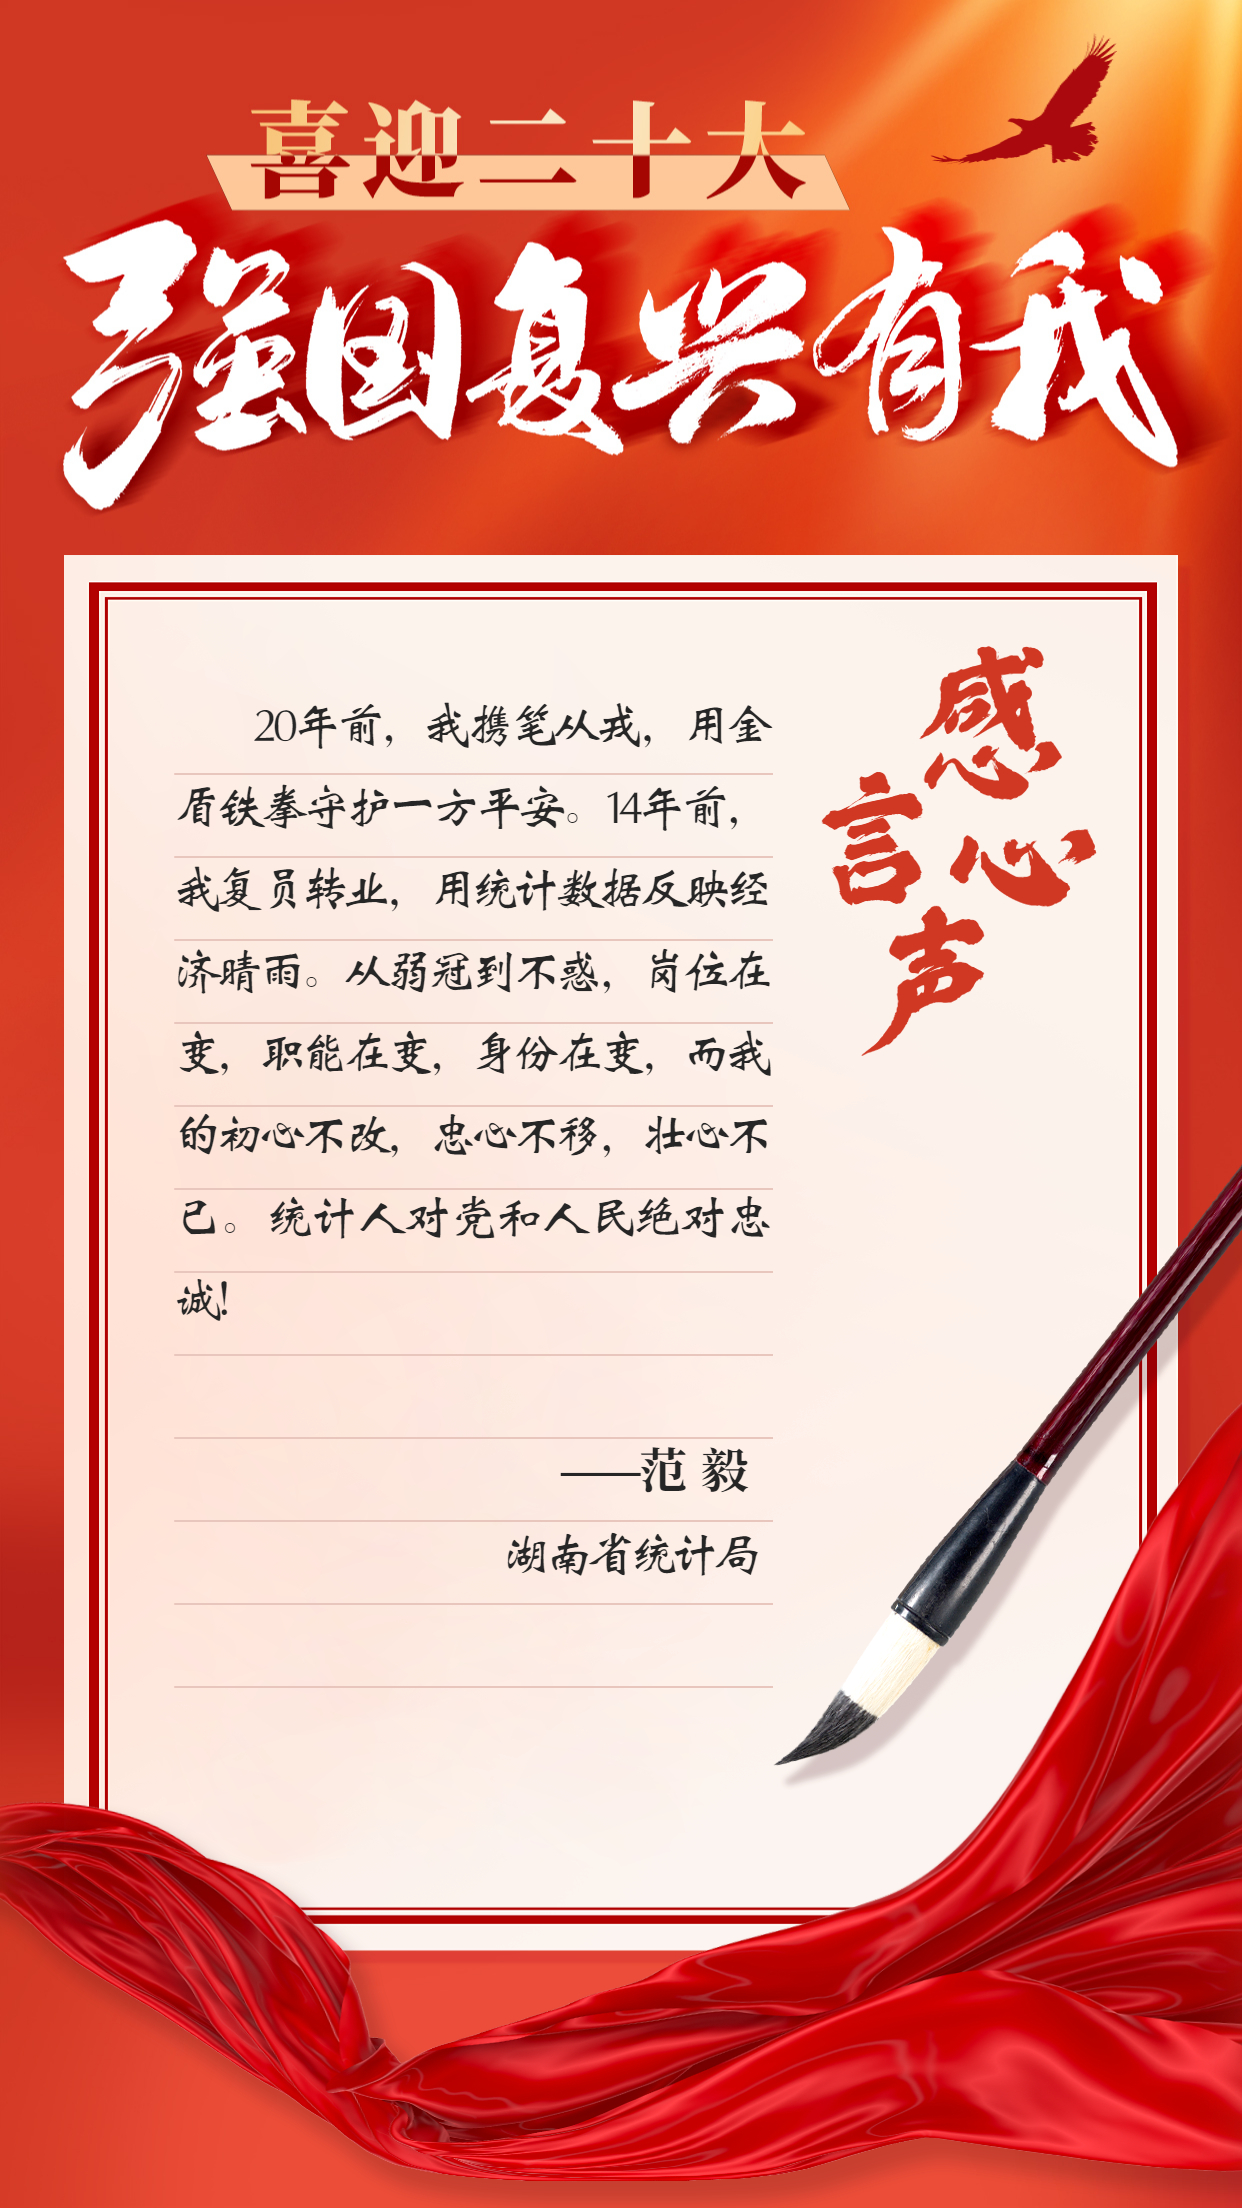 喜迎二十大
强国复兴有我
感言心声
20年前，我携笔从戎，用金
盾铁拳守护一方平安。14年前，
我复员转业，用统计数据反映经
济晴雨。从弱冠到不惑，岗位在
变，职能在变，身份在变，而我
的初心不改，忠心不移，壮心不
已。统计人对党和人民绝对忠
诚！
——范 毅
湖南省统计局